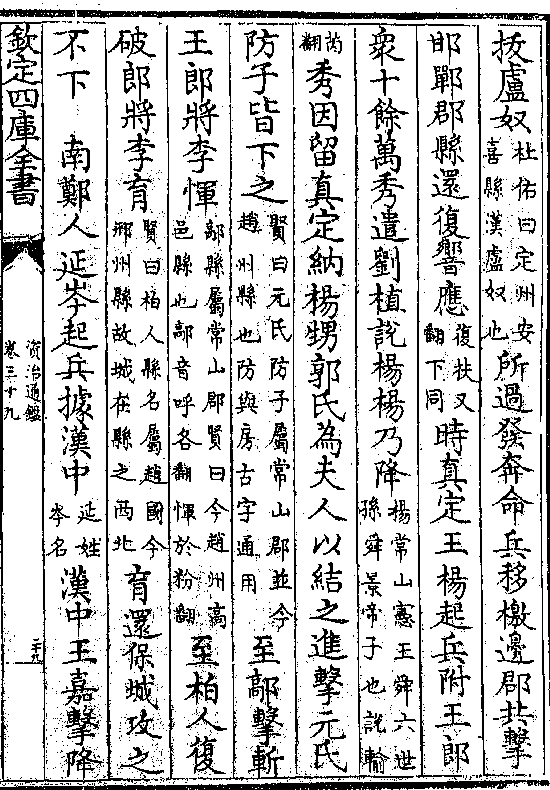 拔盧奴杜佑曰定州安喜縣漢盧奴也所過發奔命兵移檄邊郡共擊
邯鄲郡縣還復響應復扶又翻下同時真定王楊起兵附王郎
衆十餘萬秀遣劉植說楊楊乃降楊常山憲王舜六世孫舜景帝子也說輸
芮翻秀因留真定納楊甥郭氏為夫人以結之進擊元氏
防子皆下之賢曰元氏防子屬常山郡並今趙州縣也防與房古字通用至鄗擊斬
王郎將李惲鄗縣屬常山郡賢曰今趙州高邑縣也鄗音呼各翻惲於粉翻至柏人復
破郎將李育賢曰柏人縣名屬趙國今邢州縣故城在縣之西北育還保城攻之
不下　南鄭人延岑起兵據漢中延姓岑名漢中王嘉擊降
欽定四庫全書
資治通鑑
卷三十九
二十九